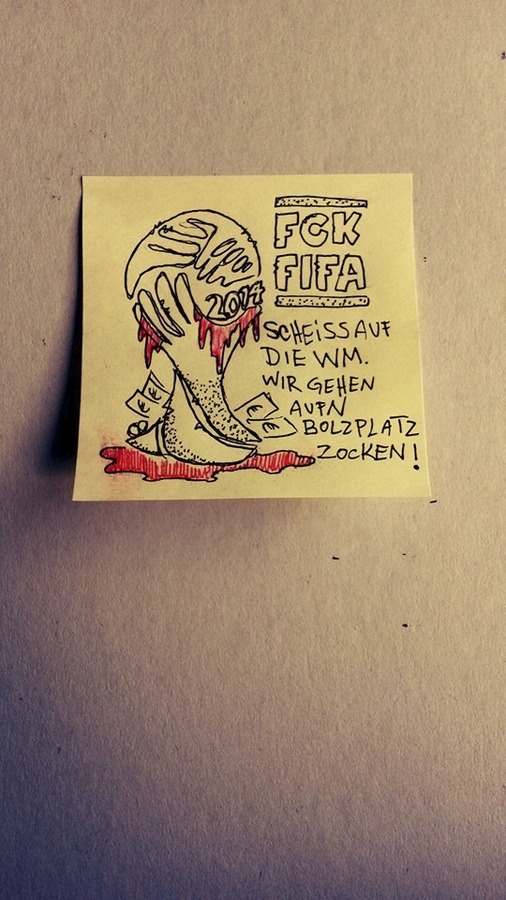 FCK
FIFA
2014
SCHEISS AUF
DIE WM.
WIR GEHEN
AUFN
BOLZPLATZ
ZOCKEN!
€
€
€
€